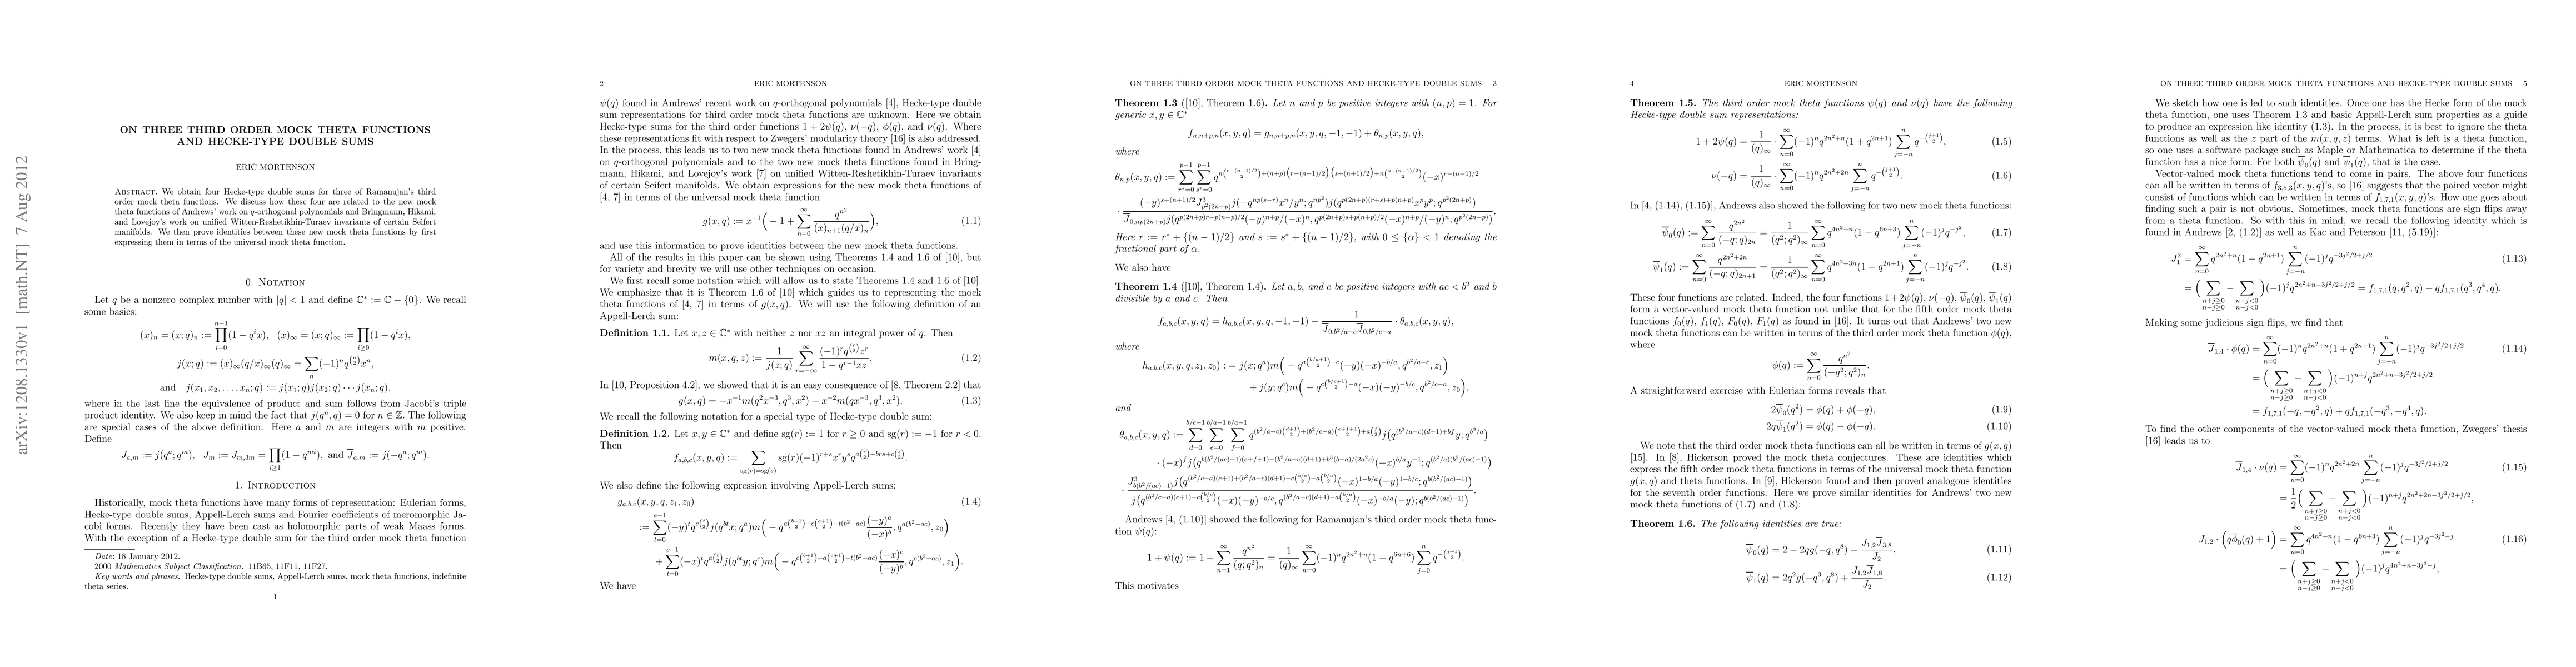 arXiv:1208.1330v1 [math.NT] 7 Aug 2012
ON THREE THIRD ORDER MOCK THETA FUNCTIONS
AND HECKE-TYPE DOUBLE SUMS
ERIC MORTENSON
Abstract. We obtain four Hecke-type double sums for three of Ramanujan's third
order mock theta functions. We discuss how these four are related to the new mock
theta functions of Andrews' work on q-orthogonal polynomials and Bringmann, Hikami,
and Lovejoy's work on unified Witten-Reshetikhin-Turaev invariants of certain Seifert
manifolds. We then prove identities between these new mock theta functions by first
expressing them in terms of the universal mock theta function.
0. Notation
Let q be a nonzero complex number with |q| < 1 and define ℂ* := ℂ − {0}. We recall
some basics:
(x)_n = (x; q)_n := ∏_{i=0}^{n−1}(1 − q^i x), (x)_∞ = (x; q)_∞ := ∏_{i≥0}(1 − q^i x),
j(x; q) := (x)_∞(q/x)_∞(q)_∞ = ∑_n (−1)^n q^{\binom{n}{2}} x^n,
and j(x_1, x_2, . . . , x_n; q) := j(x_1; q)j(x_2; q) · · · j(x_n; q).
where in the last line the equivalence of product and sum follows from Jacobi's triple
product identity. We also keep in mind the fact that j(q^n, q) = 0 for n ∈ ℤ. The following
are special cases of the above definition. Here a and m are integers with m positive.
Define
J_{a,m} := j(q^a; q^m), J_m := J_{m,3m} = ∏_{i≥1}(1 − q^{mi}), and \overline{J}_{a,m} := j(−q^a; q^m).
1. Introduction
Historically, mock theta functions have many forms of representation: Eulerian forms,
Hecke-type double sums, Appell-Lerch sums and Fourier coefficients of meromorphic Ja-
cobi forms. Recently they have been cast as holomorphic parts of weak Maass forms.
With the exception of a Hecke-type double sum for the third order mock theta function
Date: 18 January 2012.
2000 Mathematics Subject Classification. 11B65, 11F11, 11F27.
Key words and phrases. Hecke-type double sums, Appell-Lerch sums, mock theta functions, indefinite
theta series.
1
2 ERIC MORTENSON
ψ(q) found in Andrews' recent work on q-orthogonal polynomials [4], Hecke-type double
sum representations for third order mock theta functions are unknown. Here we obtain
Hecke-type sums for the third order functions 1 + 2ψ(q), ν(−q), ϕ(q), and ν(q). Where
these representations fit with respect to Zwegers' modularity theory [16] is also addressed.
In the process, this leads us to two new mock theta functions found in Andrews' work [4]
on q-orthogonal polynomials and to the two new mock theta functions found in Bring-
mann, Hikami, and Lovejoy's work [7] on unified Witten-Reshetikhin-Turaev invariants
of certain Seifert manifolds. We obtain expressions for the new mock theta functions of
[4, 7] in terms of the universal mock theta function
g(x, q) := x^{−1}(−1 + ∑_{n=0}^∞ \frac{q^{n^2}}{(x)_{n+1}(q/x)_n}), (1.1)
and use this information to prove identities between the new mock theta functions.
All of the results in this paper can be shown using Theorems 1.4 and 1.6 of [10], but
for variety and brevity we will use other techniques on occasion.
We first recall some notation which will allow us to state Theorems 1.4 and 1.6 of [10].
We emphasize that it is Theorem 1.6 of [10] which guides us to representing the mock
theta functions of [4, 7] in terms of g(x, q). We will use the following definition of an
Appell-Lerch sum:
Definition 1.1. Let x, z ∈ ℂ* with neither z nor xz an integral power of q. Then
m(x, q, z) := \frac{1}{j(z; q)} ∑_{r=−∞}^∞ \frac{(−1)^r q^{\binom{r}{2}} z^r}{1 − q^{r−1}xz}. (1.2)
In [10, Proposition 4.2], we showed that it is an easy consequence of [8, Theorem 2.2] that
g(x, q) = −x^{−1}m(q^2x^{−3}, q^3, x^2) − x^{−2}m(qx^{−3}, q^3, x^2). (1.3)
We recall the following notation for a special type of Hecke-type double sum:
Definition 1.2. Let x, y ∈ ℂ* and define sg(r) := 1 for r ≥ 0 and sg(r) := −1 for r < 0.
Then
f_{a,b,c}(x, y, q) := ∑_{sg(r)=sg(s)} sg(r)(−1)^{r+s} x^r y^s q^{a\binom{r}{2}+brs+c\binom{s}{2}}.
We also define the following expression involving Appell-Lerch sums:
g_{a,b,c}(x, y, q, z_1, z_0) (1.4)
:= ∑_{t=0}^{a−1}(−y)^t q^{c\binom{t}{2}} j(q^{bt}x; q^a) m(−q^{a\binom{b+1}{2}−c\binom{a+1}{2}−t(b^2−ac)} \frac{(−y)^a}{(−x)^b}, q^{a(b^2−ac)}, z_0)
+ ∑_{t=0}^{c−1}(−x)^t q^{a\binom{t}{2}} j(q^{bt}y; q^c) m(−q^{c\binom{b+1}{2}−a\binom{c+1}{2}−t(b^2−ac)} \frac{(−x)^c}{(−y)^b}, q^{c(b^2−ac)}, z_1).
We have
ON THREE THIRD ORDER MOCK THETA FUNCTIONS AND HECKE-TYPE DOUBLE SUMS 3
Theorem 1.3 ([10], Theorem 1.6). Let n and p be positive integers with (n, p) = 1. For
generic x, y ∈ ℂ*
f_{n,n+p,n}(x, y, q) = g_{n,n+p,n}(x, y, q, −1, −1) + θ_{n,p}(x, y, q),
where
Here r := r* + {(n − 1)/2} and s := s* + {(n − 1)/2}, with 0 ≤ {α} < 1 denoting the
fractional part of α.
We also have
Theorem 1.4 ([10], Theorem 1.4). Let a, b, and c be positive integers with ac < b^2 and b
divisible by a and c. Then
f_{a,b,c}(x, y, q) = h_{a,b,c}(x, y, q, −1, −1) − \frac{1}{\overline{J}_{0,b^2/a−c}\overline{J}_{0,b^2/c−a}} · θ_{a,b,c}(x, y, q),
where
h_{a,b,c}(x, y, q, z_1, z_0) := j(x; q^a)m(−q^{a\binom{b/a+1}{2}−c}(−y)(−x)^{−b/a}, q^{b^2/a−c}, z_1)
+ j(y; q^c)m(−q^{c\binom{b/c+1}{2}−a}(−x)(−y)^{−b/c}, q^{b^2/c−a}, z_0),
and
Andrews [4, (1.10)] showed the following for Ramanujan's third order mock theta func-
tion ψ(q):
1 + ψ(q) := 1 + ∑_{n=1}^∞ \frac{q^{n^2}}{(q; q^2)_n} = \frac{1}{(q)_∞} ∑_{n=0}^∞(−1)^n q^{2n^2+n}(1 − q^{6n+6}) ∑_{j=0}^n q^{−\binom{j+1}{2}}.
This motivates
4 ERIC MORTENSON
Theorem 1.5. The third order mock theta functions ψ(q) and ν(q) have the following
Hecke-type double sum representations:
1 + 2ψ(q) = \frac{1}{(q)_∞} · ∑_{n=0}^∞(−1)^n q^{2n^2+n}(1 + q^{2n+1}) ∑_{j=−n}^n q^{−\binom{j+1}{2}}, (1.5)
ν(−q) = \frac{1}{(q)_∞} · ∑_{n=0}^∞(−1)^n q^{2n^2+2n} ∑_{j=−n}^n q^{−\binom{j+1}{2}}. (1.6)
In [4, (1.14), (1.15)], Andrews also showed the following for two new mock theta functions:
\overline{ψ}_0(q) := ∑_{n=0}^∞ \frac{q^{2n^2}}{(−q; q)_{2n}} = \frac{1}{(q^2; q^2)_∞} ∑_{n=0}^∞ q^{4n^2+n}(1 − q^{6n+3}) ∑_{j=−n}^n(−1)^j q^{−j^2}, (1.7)
\overline{ψ}_1(q) := ∑_{n=0}^∞ \frac{q^{2n^2+2n}}{(−q; q)_{2n+1}} = \frac{1}{(q^2; q^2)_∞} ∑_{n=0}^∞ q^{4n^2+3n}(1 − q^{2n+1}) ∑_{j=−n}^n(−1)^j q^{−j^2}. (1.8)
These four functions are related. Indeed, the four functions 1+2ψ(q), ν(−q), \overline{ψ}_0(q), \overline{ψ}_1(q)
form a vector-valued mock theta function not unlike that for the fifth order mock theta
functions f_0(q), f_1(q), F_0(q), F_1(q) as found in [16]. It turns out that Andrews' two new
mock theta functions can be written in terms of the third order mock theta function ϕ(q),
where
ϕ(q) := ∑_{n=0}^∞ \frac{q^{n^2}}{(−q^2; q^2)_n}.
A straightforward exercise with Eulerian forms reveals that
2\overline{ψ}_0(q^2) = ϕ(q) + ϕ(−q), (1.9)
2q\overline{ψ}_1(q^2) = ϕ(q) − ϕ(−q). (1.10)
We note that the third order mock theta functions can all be written in terms of g(x, q)
[15]. In [8], Hickerson proved the mock theta conjectures. These are identities which
express the fifth order mock theta functions in terms of the universal mock theta function
g(x, q) and theta functions. In [9], Hickerson found and then proved analogous identities
for the seventh order functions. Here we prove similar identities for Andrews' two new
mock theta functions of (1.7) and (1.8):
Theorem 1.6. The following identities are true:
\overline{ψ}_0(q) = 2 − 2qg(−q, q^8) − \frac{J_{1,2}\overline{J}_{3,8}}{J_2}, (1.11)
\overline{ψ}_1(q) = 2q^2g(−q^3, q^8) + \frac{J_{1,2}\overline{J}_{1,8}}{J_2}. (1.12)
ON THREE THIRD ORDER MOCK THETA FUNCTIONS AND HECKE-TYPE DOUBLE SUMS 5
We sketch how one is led to such identities. Once one has the Hecke form of the mock
theta function, one uses Theorem 1.3 and basic Appell-Lerch sum properties as a guide
to produce an expression like identity (1.3). In the process, it is best to ignore the theta
functions as well as the z part of the m(x, q, z) terms. What is left is a theta function,
so one uses a software package such as Maple or Mathematica to determine if the theta
function has a nice form. For both \overline{ψ}_0(q) and \overline{ψ}_1(q), that is the case.
Vector-valued mock theta functions tend to come in pairs. The above four functions
can all be written in terms of f_{3,5,3}(x, y, q)'s, so [16] suggests that the paired vector might
consist of functions which can be written in terms of f_{1,7,1}(x, y, q)'s. How one goes about
finding such a pair is not obvious. Sometimes, mock theta functions are sign flips away
from a theta function. So with this in mind, we recall the following identity which is
found in Andrews [2, (1.2)] as well as Kac and Peterson [11, (5.19)]:
J_1^2 = ∑_{n=0}^∞ q^{2n^2+n}(1 − q^{2n+1}) ∑_{j=−n}^n(−1)^j q^{−3j^2/2+j/2} (1.13)
= (∑_{n+j≥0, n−j≥0} − ∑_{n+j<0, n−j<0})(−1)^j q^{2n^2+n−3j^2/2+j/2} = f_{1,7,1}(q, q^2, q) − qf_{1,7,1}(q^3, q^4, q).
Making some judicious sign flips, we find that
\overline{J}_{1,4} · ϕ(q) = ∑_{n=0}^∞(−1)^n q^{2n^2+n}(1 + q^{2n+1}) ∑_{j=−n}^n(−1)^j q^{−3j^2/2+j/2} (1.14)
= (∑_{n+j≥0, n−j≥0} − ∑_{n+j<0, n−j<0})(−1)^{n+j} q^{2n^2+n−3j^2/2+j/2}
= f_{1,7,1}(−q, −q^2, q) + qf_{1,7,1}(−q^3, −q^4, q).
To find the other components of the vector-valued mock theta function, Zwegers' thesis
[16] leads us to
\overline{J}_{1,4} · ν(q) = ∑_{n=0}^∞(−1)^n q^{2n^2+2n} ∑_{j=−n}^n(−1)^j q^{−3j^2/2+j/2} (1.15)
= \frac{1}{2}(∑_{n+j≥0, n−j≥0} − ∑_{n+j<0, n−j<0})(−1)^{n+j} q^{2n^2+2n−3j^2/2+j/2},
J_{1,2} · (q\overline{ϕ}_0(q) + 1) = ∑_{n=0}^∞ q^{4n^2+n}(1 − q^{6n+3}) ∑_{j=−n}^n(−1)^j q^{−3j^2−j} (1.16)
= (∑_{n+j≥0, n−j≥0} − ∑_{n+j<0, n−j<0})(−1)^j q^{4n^2+n−3j^2−j},